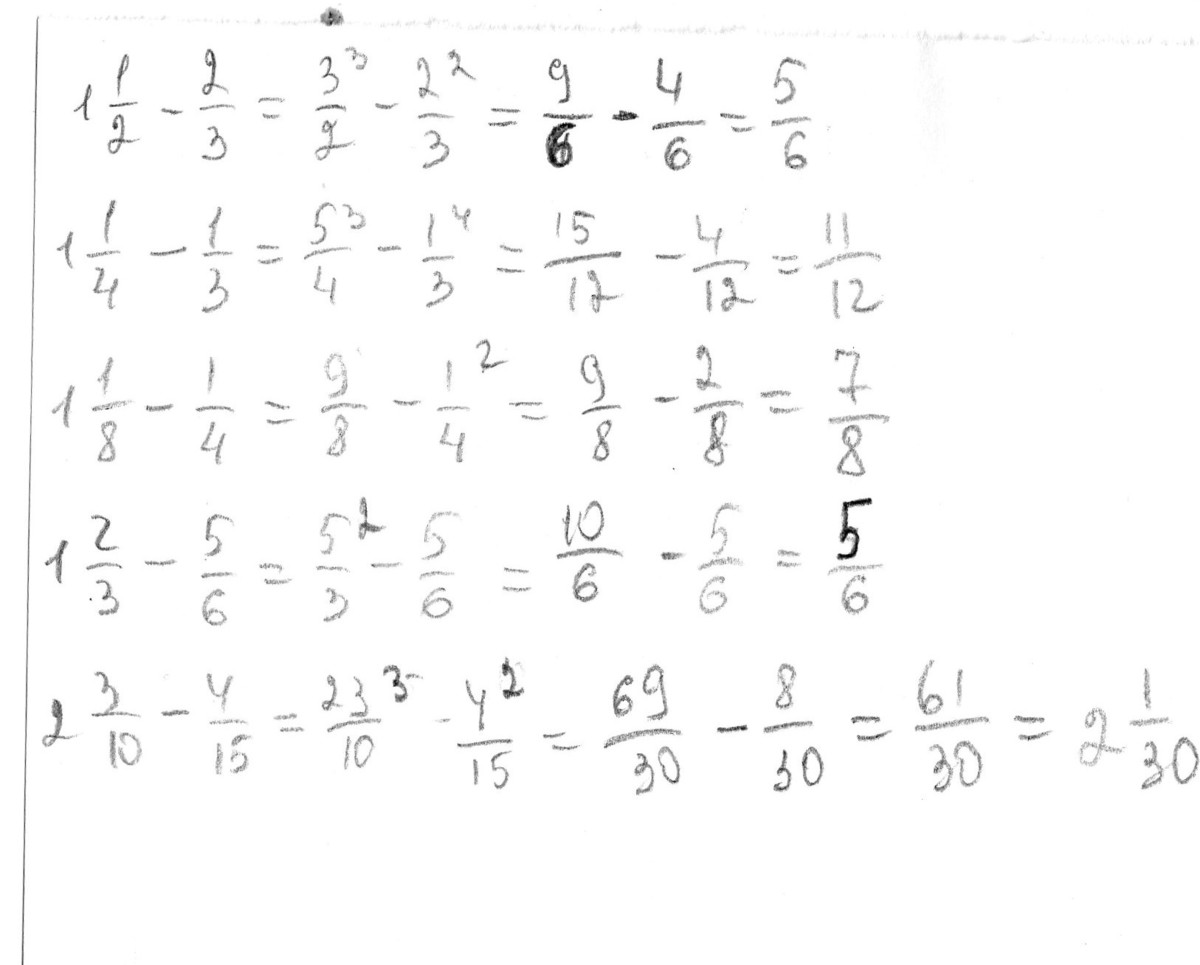 1 1/2 - 2/3 = 3³/2 - 2²/3 = 9/6 - 4/6 = 5/6
1 1/4 - 1/3 = 5³/4 - 1⁴/3 = 15/12 - 4/12 = 11/12
1 1/8 - 1/4 = 9/8 - 1²/4 = 9/8 - 2/8 = 7/8
1 2/3 - 5/6 = 5²/3 - 5/6 = 10/6 - 5/6 = 5/6
2 3/10 - 4/15 = 23³/10 - 4²/15 = 69/30 - 8/30 = 61/30 = 2 1/30